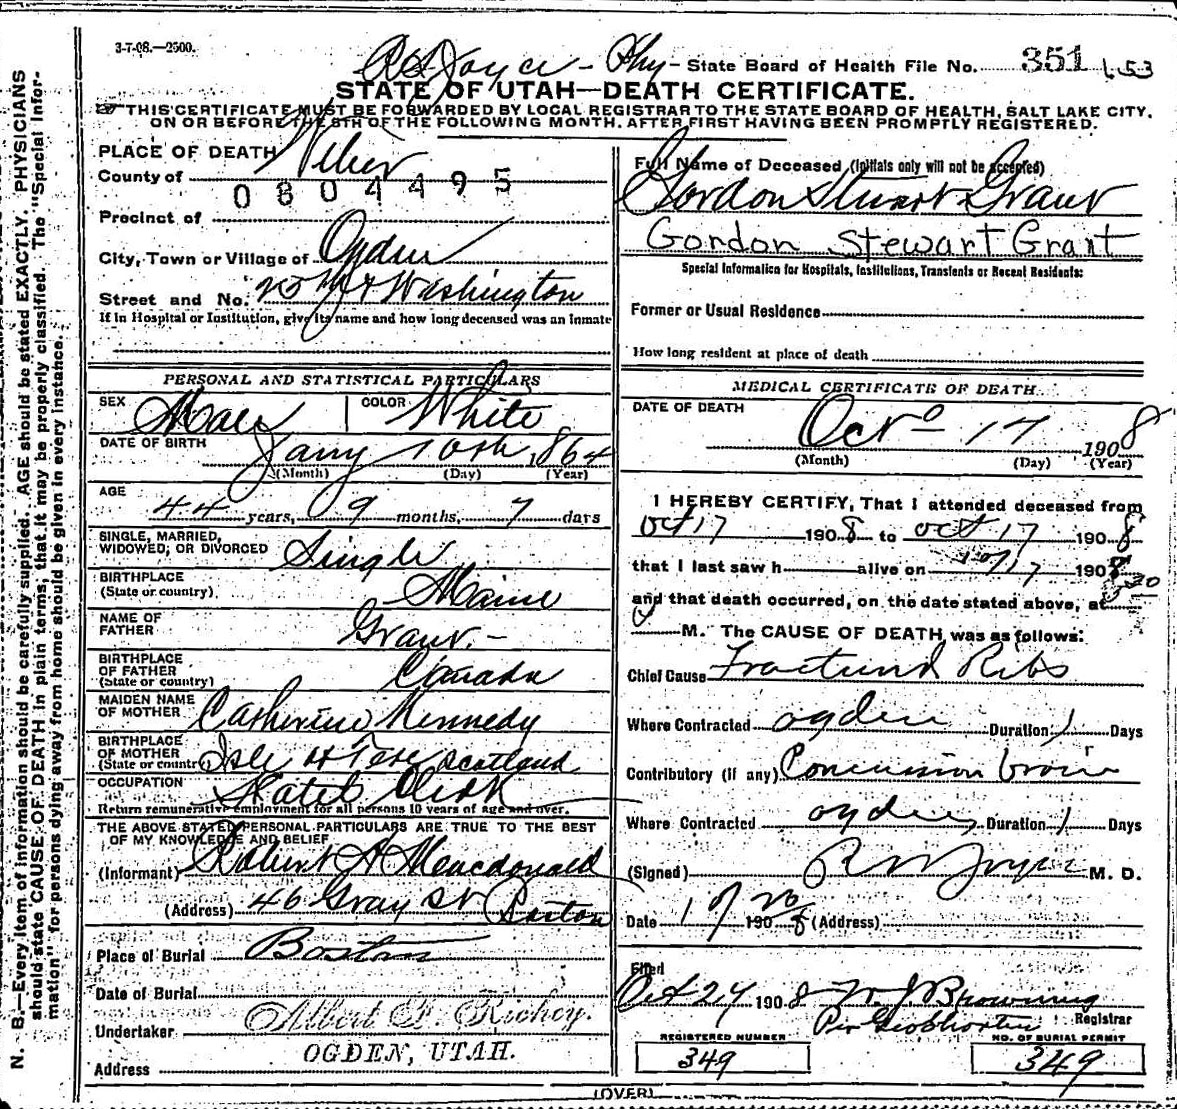 3-7-08.—2500.
R S Joyce - Phy - State Board of Health File No. 351 1653
STATE OF UTAH—DEATH CERTIFICATE.
THIS CERTIFICATE MUST BE FORWARDED BY LOCAL REGISTRAR TO THE STATE BOARD OF HEALTH, SALT LAKE CITY,
ON OR BEFORE THE 5TH OF THE FOLLOWING MONTH, AFTER FIRST HAVING BEEN PROMPTLY REGISTERED.
N. B.—Every item of information should be carefully supplied. AGE should be stated EXACTLY. PHYSICIANS
should state CAUSE OF DEATH in plain terms, that it may be properly classified. The "Special Infor-
mation" for persons dying away from home should be given in every instance.
PLACE OF DEATH
County of Weber
0804495
Precinct of
City, Town or Village of Ogden
Street and No. 25th & Washington
If in Hospital or Institution, give its name and how long deceased was an inmate
PERSONAL AND STATISTICAL PARTICULARS
SEX Male COLOR White
DATE OF BIRTH Jany 10th 1864
(Month) (Day) (Year)
AGE 44 years, 9 months, 7 days
SINGLE, MARRIED,
WIDOWED, OR DIVORCED Single
BIRTHPLACE
(State or country) Maine
NAME OF
FATHER Grant -
BIRTHPLACE
OF FATHER
(State or country) Canada
MAIDEN NAME
OF MOTHER Catherine Kennedy
BIRTHPLACE
OF MOTHER
(State or country) Isle Scotland
OCCUPATION Clerk
Return remunerative employment for all persons 10 years of age and over.
THE ABOVE STATED PERSONAL PARTICULARS ARE TRUE TO THE BEST
OF MY KNOWLEDGE AND BELIEF
(Informant) Robert A Macdonald
(Address) 46 Gray St Boston
Place of Burial Boston
Date of Burial
Undertaker Albert P. Richey.
Address OGDEN, UTAH.
Full Name of Deceased (Initials only will not be accepted)
Gordon Stuart Grant
Gordon Stewart Grant
Special Information for Hospitals, Institutions, Transients or Recent Residents:
Former or Usual Residence
How long resident at place of death
MEDICAL CERTIFICATE OF DEATH
DATE OF DEATH
Oct 17 1908
(Month) (Day) (Year)
I HEREBY CERTIFY, That I attended deceased from
Oct 17 1908 to Oct 17 1908
that I last saw h alive on 10/17 1908
and that death occurred, on the date stated above, at
M. The CAUSE OF DEATH was as follows:
Chief Cause Fractured Ribs
Where Contracted Ogden Duration 1 Days
Contributory (if any) Concussion brain
Where Contracted Ogden Duration 1 Days
(Signed) R S Joyce M. D.
Date 10/20 1908 (Address)
Filed
Oct 24 1908 W. J. Browning
Registrar
REGISTERED NUMBER
349
NO. OF BURIAL PERMIT
349
(OVER)